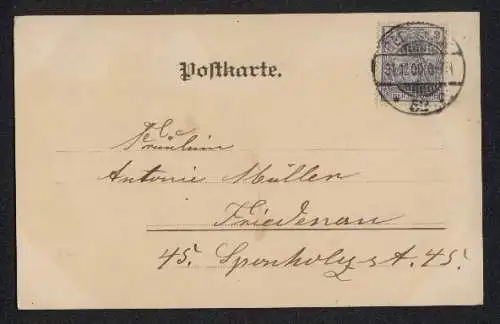 Postkarte.
31.12.00
52
Fräulein
Antonie Müller
Friedenau
45. Sponholz st. 45.